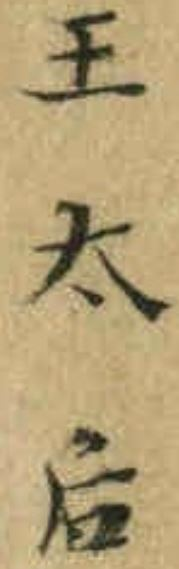 王太后